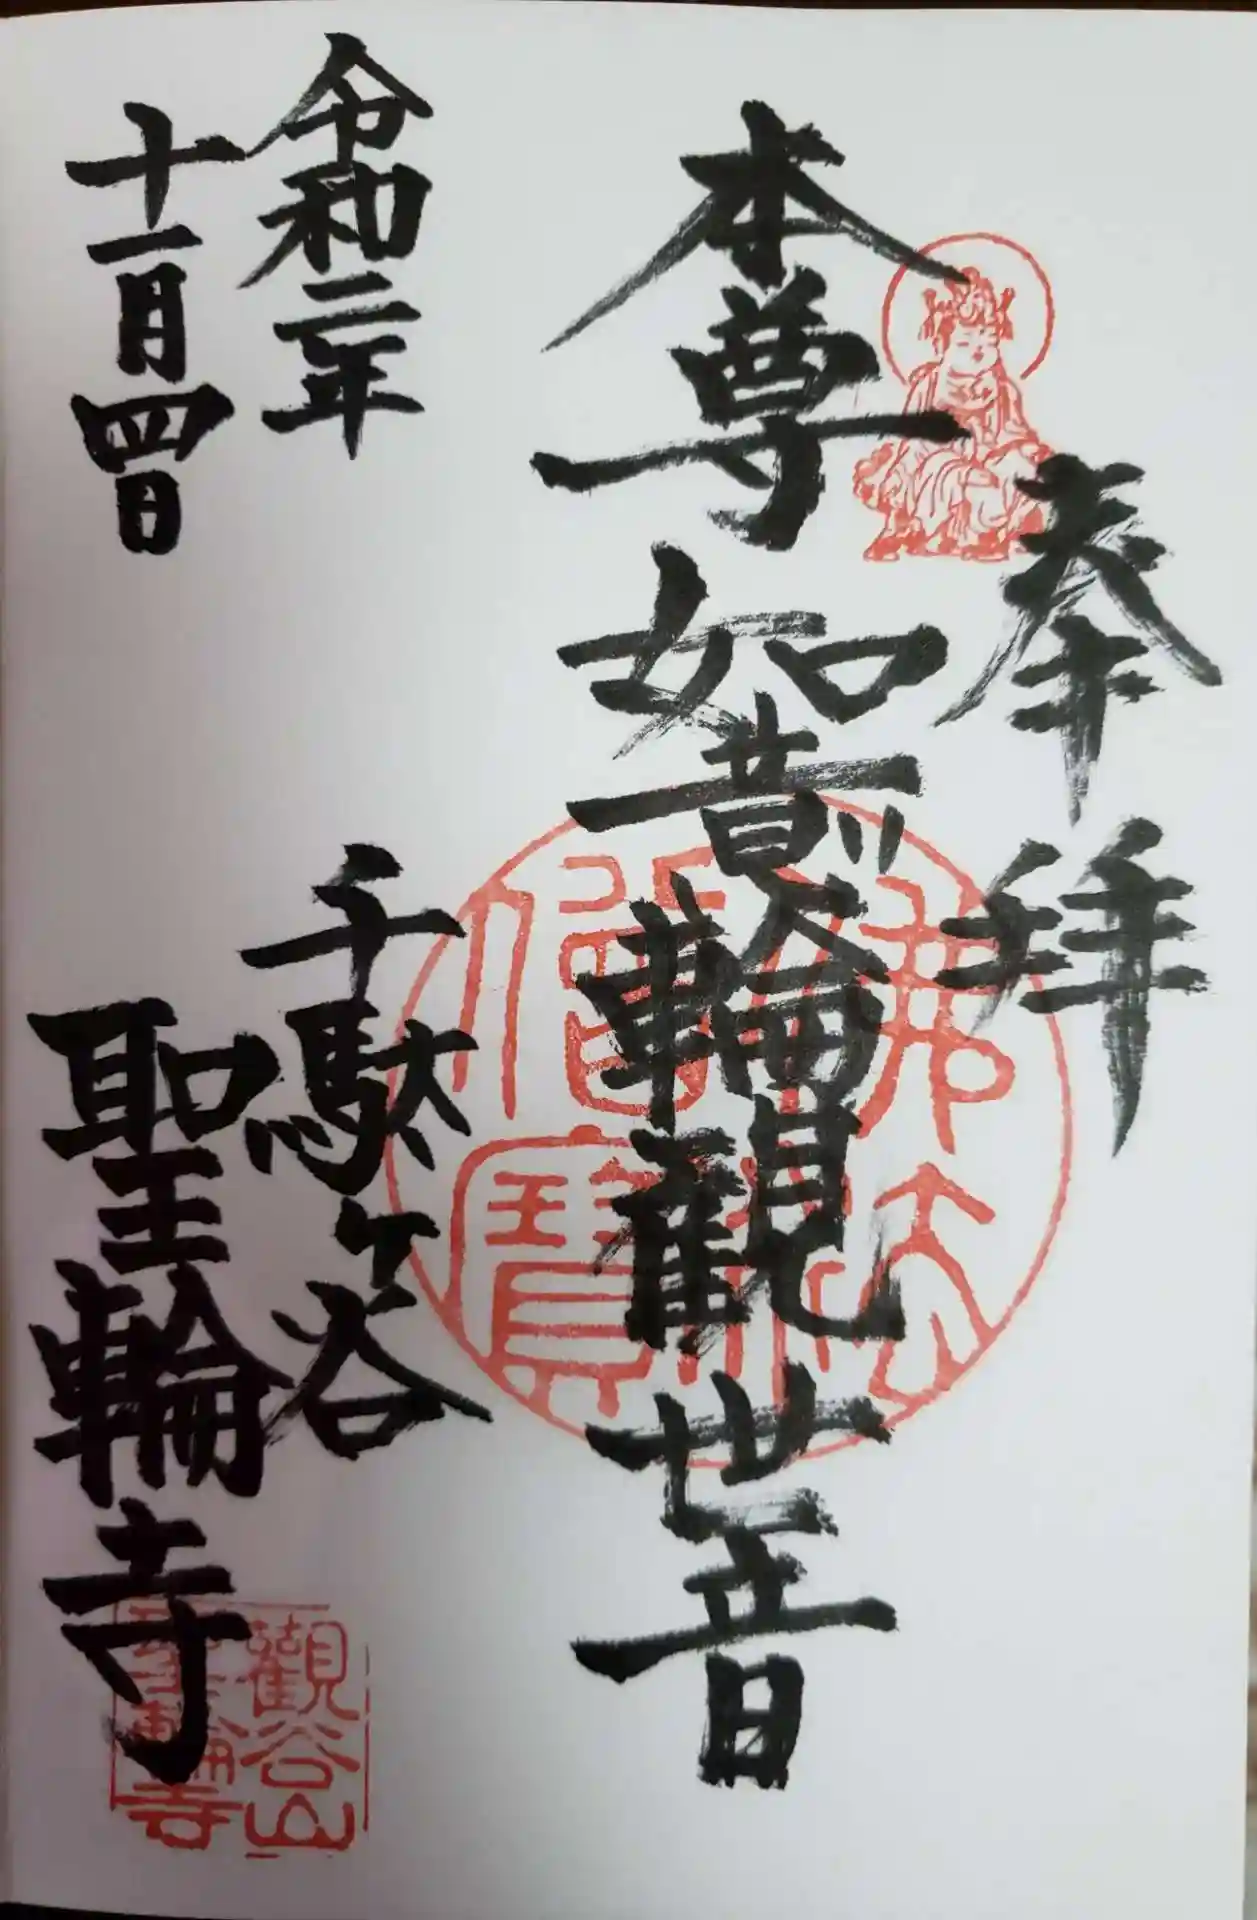 奉拝
本尊如意輪観世音
佛法僧寶
令和二年
十一月四日
千駄ヶ谷
聖輪寺
觀谷山
聖輪寺